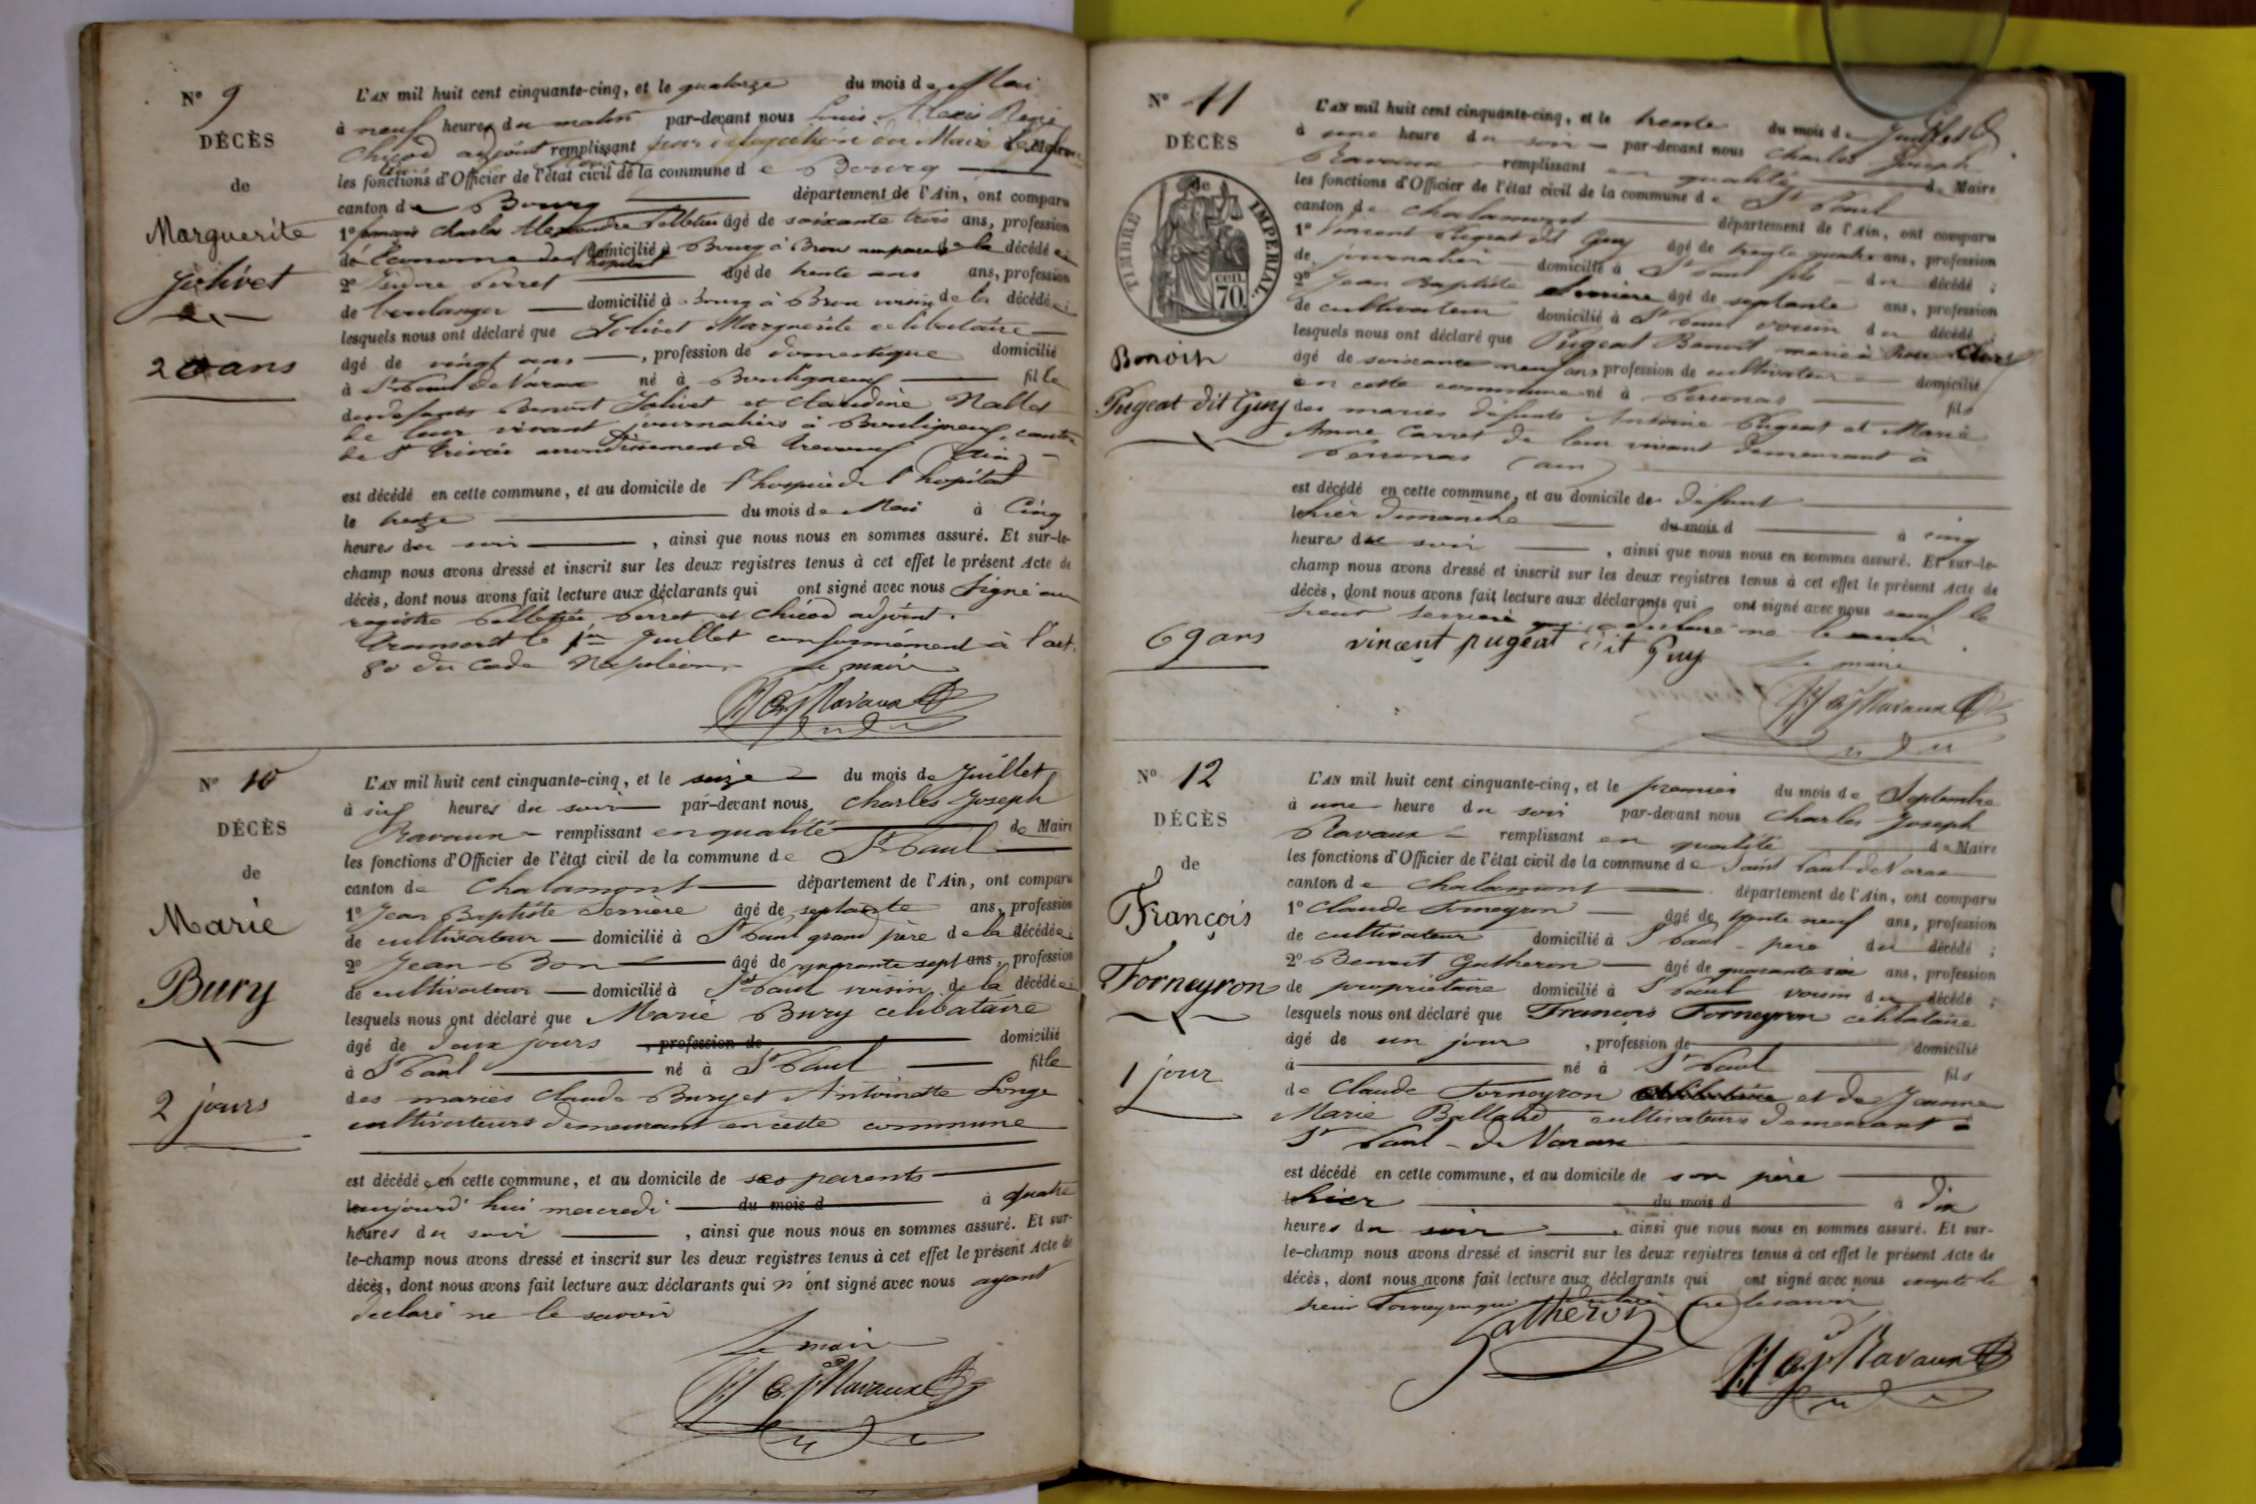 N° 9
DÉCÈS
de
Marguerite
Jolivet
20 ans
L'AN mil huit cent cinquante-cinq, et le quatorze du mois de Mai
à neuf heures du matin par-devant nous Louis Alexis René
Chicod adjoint remplissant par délégation du Maire
les fonctions d'Officier de l'état civil de la commune de Bourg
canton de Bourg département de l'Ain, ont comparu
1° Charles Alexandre Pelletier âgé de soixante trois ans, profession
de Économe des domicilié à Bourg à Brou de la décédée
2° Perret âgé de trente ans ans, profession
de boulanger domicilié à Bourg à Brou voisin de la décédée;
lesquels nous ont déclaré que Jolivet Marguerite célibataire
âgé de vingt ans, profession de domestique domicilié
à St Paul de Varax né à Bouligneux fille
des défunts Benoit Jolivet et Claudine Nallet
de leur vivant journaliers à Bouligneux, canton
de St Trivier arrondissement de Trévoux (Ain)
est décédé en cette commune, et au domicile de l'hospice de l'hôpital
le treize du mois de Mai à Cinq
heures du soir, ainsi que nous nous en sommes assuré. Et sur-le-
champ nous avons dressé et inscrit sur les deux registres tenus à cet effet le présent Acte de
décès, dont nous avons fait lecture aux déclarants qui ont signé avec nous Signé au
registre Pelletier, Perret et Chicod adjoint.
Transcrit le 1er Juillet conformément à l'art.
80 du Code Napoléon. Le maire
Ravaux
N° 10
DÉCÈS
de
Marie
Bury
2 jours
L'AN mil huit cent cinquante-cinq, et le seize du mois de Juillet
à six heures du soir par-devant nous, Charles Joseph
Ravaux remplissant en qualité de Maire
les fonctions d'Officier de l'état civil de la commune de St Paul
canton de Chalamont département de l'Ain, ont comparu
1° Jean Baptiste Serriere âgé de septante ans, profession
de cultivateur domicilié à St Paul grand père de la décédée;
2° Jean Bon âgé de quarante sept ans, profession
de cultivateur domicilié à St Paul voisin de la décédée;
lesquels nous ont déclaré que Marie Bury célibataire
âgé de deux jours, profession de domicilié
à St Paul né à St Paul fille
des mariés Claude Bury et Antoinette Longe
cultivateurs demeurant en cette commune
est décédé en cette commune, et au domicile de ses parents
le aujourd'hui mercredi du mois d à quatre
heures du soir, ainsi que nous nous en sommes assuré. Et sur-
le-champ nous avons dressé et inscrit sur les deux registres tenus à cet effet le présent Acte de
décès, dont nous avons fait lecture aux déclarants qui n'ont signé avec nous ayant
declaré ne le savoir
Le maire
Ravaux
N° 11
DÉCÈS
de
TIMBRE IMPERIAL
70 cen
Benoit
Pugeat dit Guy
69 ans
L'AN mil huit cent cinquante-cinq, et le trente du mois de Juillet
à une heure du soir par-devant nous Charles Joseph
Ravaux remplissant en qualité de Maire
les fonctions d'Officier de l'état civil de la commune de St Paul
canton de Chalamont département de l'Ain, ont comparu
1° Vincent Pugeat dit Guy âgé de trente quatre ans, profession
de journalier domicilié à St Paul fils du décédé;
2° Jean Baptiste Serriere âgé de septante ans, profession
de cultivateur domicilié à St Paul voisin du décédé
lesquels nous ont déclaré que Pugeat Benoit marié à
âgé de soixante neuf ans profession de cultivateur domicilié
en cette commune né à Peronnas fils
des mariés défunts Antoine Pugeat et Marie
Anne Carret de leur vivant demeurant à
Peronnas (ain)
est décédé en cette commune, et au domicile de défunt
le hier dimanche du mois d à cinq
heures du soir, ainsi que nous nous en sommes assuré. Et sur-le-
champ nous avons dressé et inscrit sur les deux registres tenus à cet effet le présent Acte de
décès, dont nous avons fait lecture aux déclarants qui ont signé avec nous sauf le
sieur Serriere qui a declaré ne le savoir
vincent pugeat dit Guy
Le maire
Ravaux
N° 12
DÉCÈS
de
François
Forneyron
1 jour
L'AN mil huit cent cinquante-cinq, et le premier du mois de Septembre
à une heure du soir par-devant nous Charles Joseph
Ravaux remplissant en qualité de Maire
les fonctions d'Officier de l'état civil de la commune de Saint Paul de Varax
canton de Chalamont département de l'Ain, ont comparu
1° Claude Forneyron âgé de trente neuf ans, profession
de cultivateur domicilié à St Paul père du décédé;
2° Benoit Gatheron âgé de quarante six ans, profession
de propriétaire domicilié à St Paul voisin du décédé;
lesquels nous ont déclaré que François Forneyron célibataire
âgé de un jour, profession de domicilié
à né à St Paul fils
de Claude Forneyron et de Jeanne
Marie Balland cultivateurs demeurant à
St Paul de Varax
est décédé en cette commune, et au domicile de son père
le hier du mois d à dix
heures du soir, ainsi que nous nous en sommes assuré. Et sur-
le-champ nous avons dressé et inscrit sur les deux registres tenus à cet effet le présent Acte de
décès, dont nous avons fait lecture aux déclarants qui ont signé avec nous excepté le
sieur Forneyron qui a déclaré ne le savoir
Gatheron
Ravaux